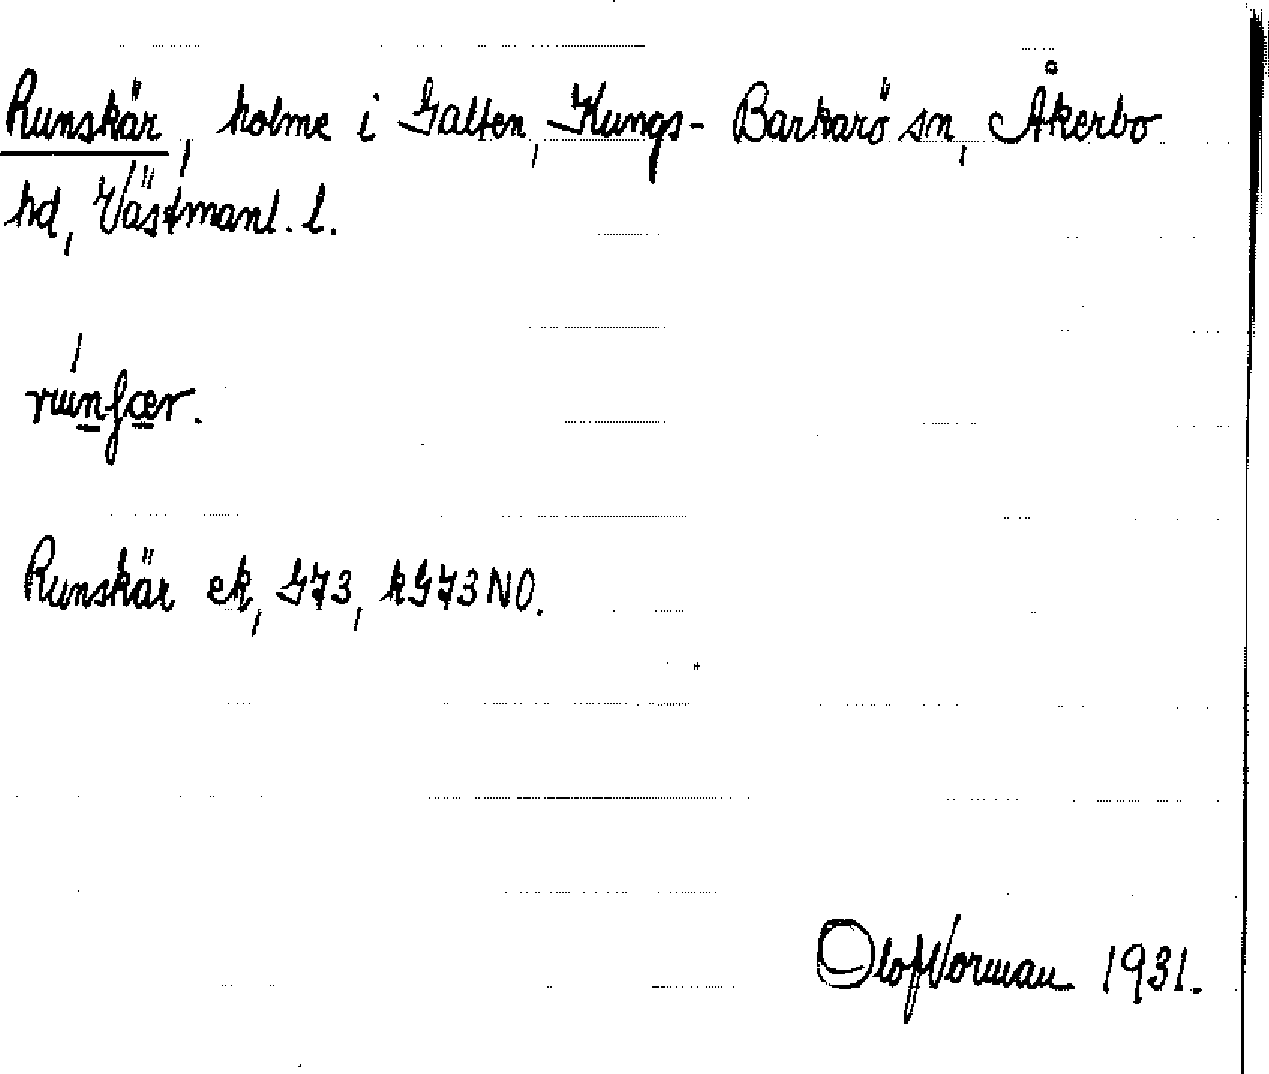 Runskär, holme i Galten, Kungs-Barkarö sn, Åkerbo
hd, Västmanl. l.
Runskär ek, G73, kG73NO.
Olof Norman 1931.